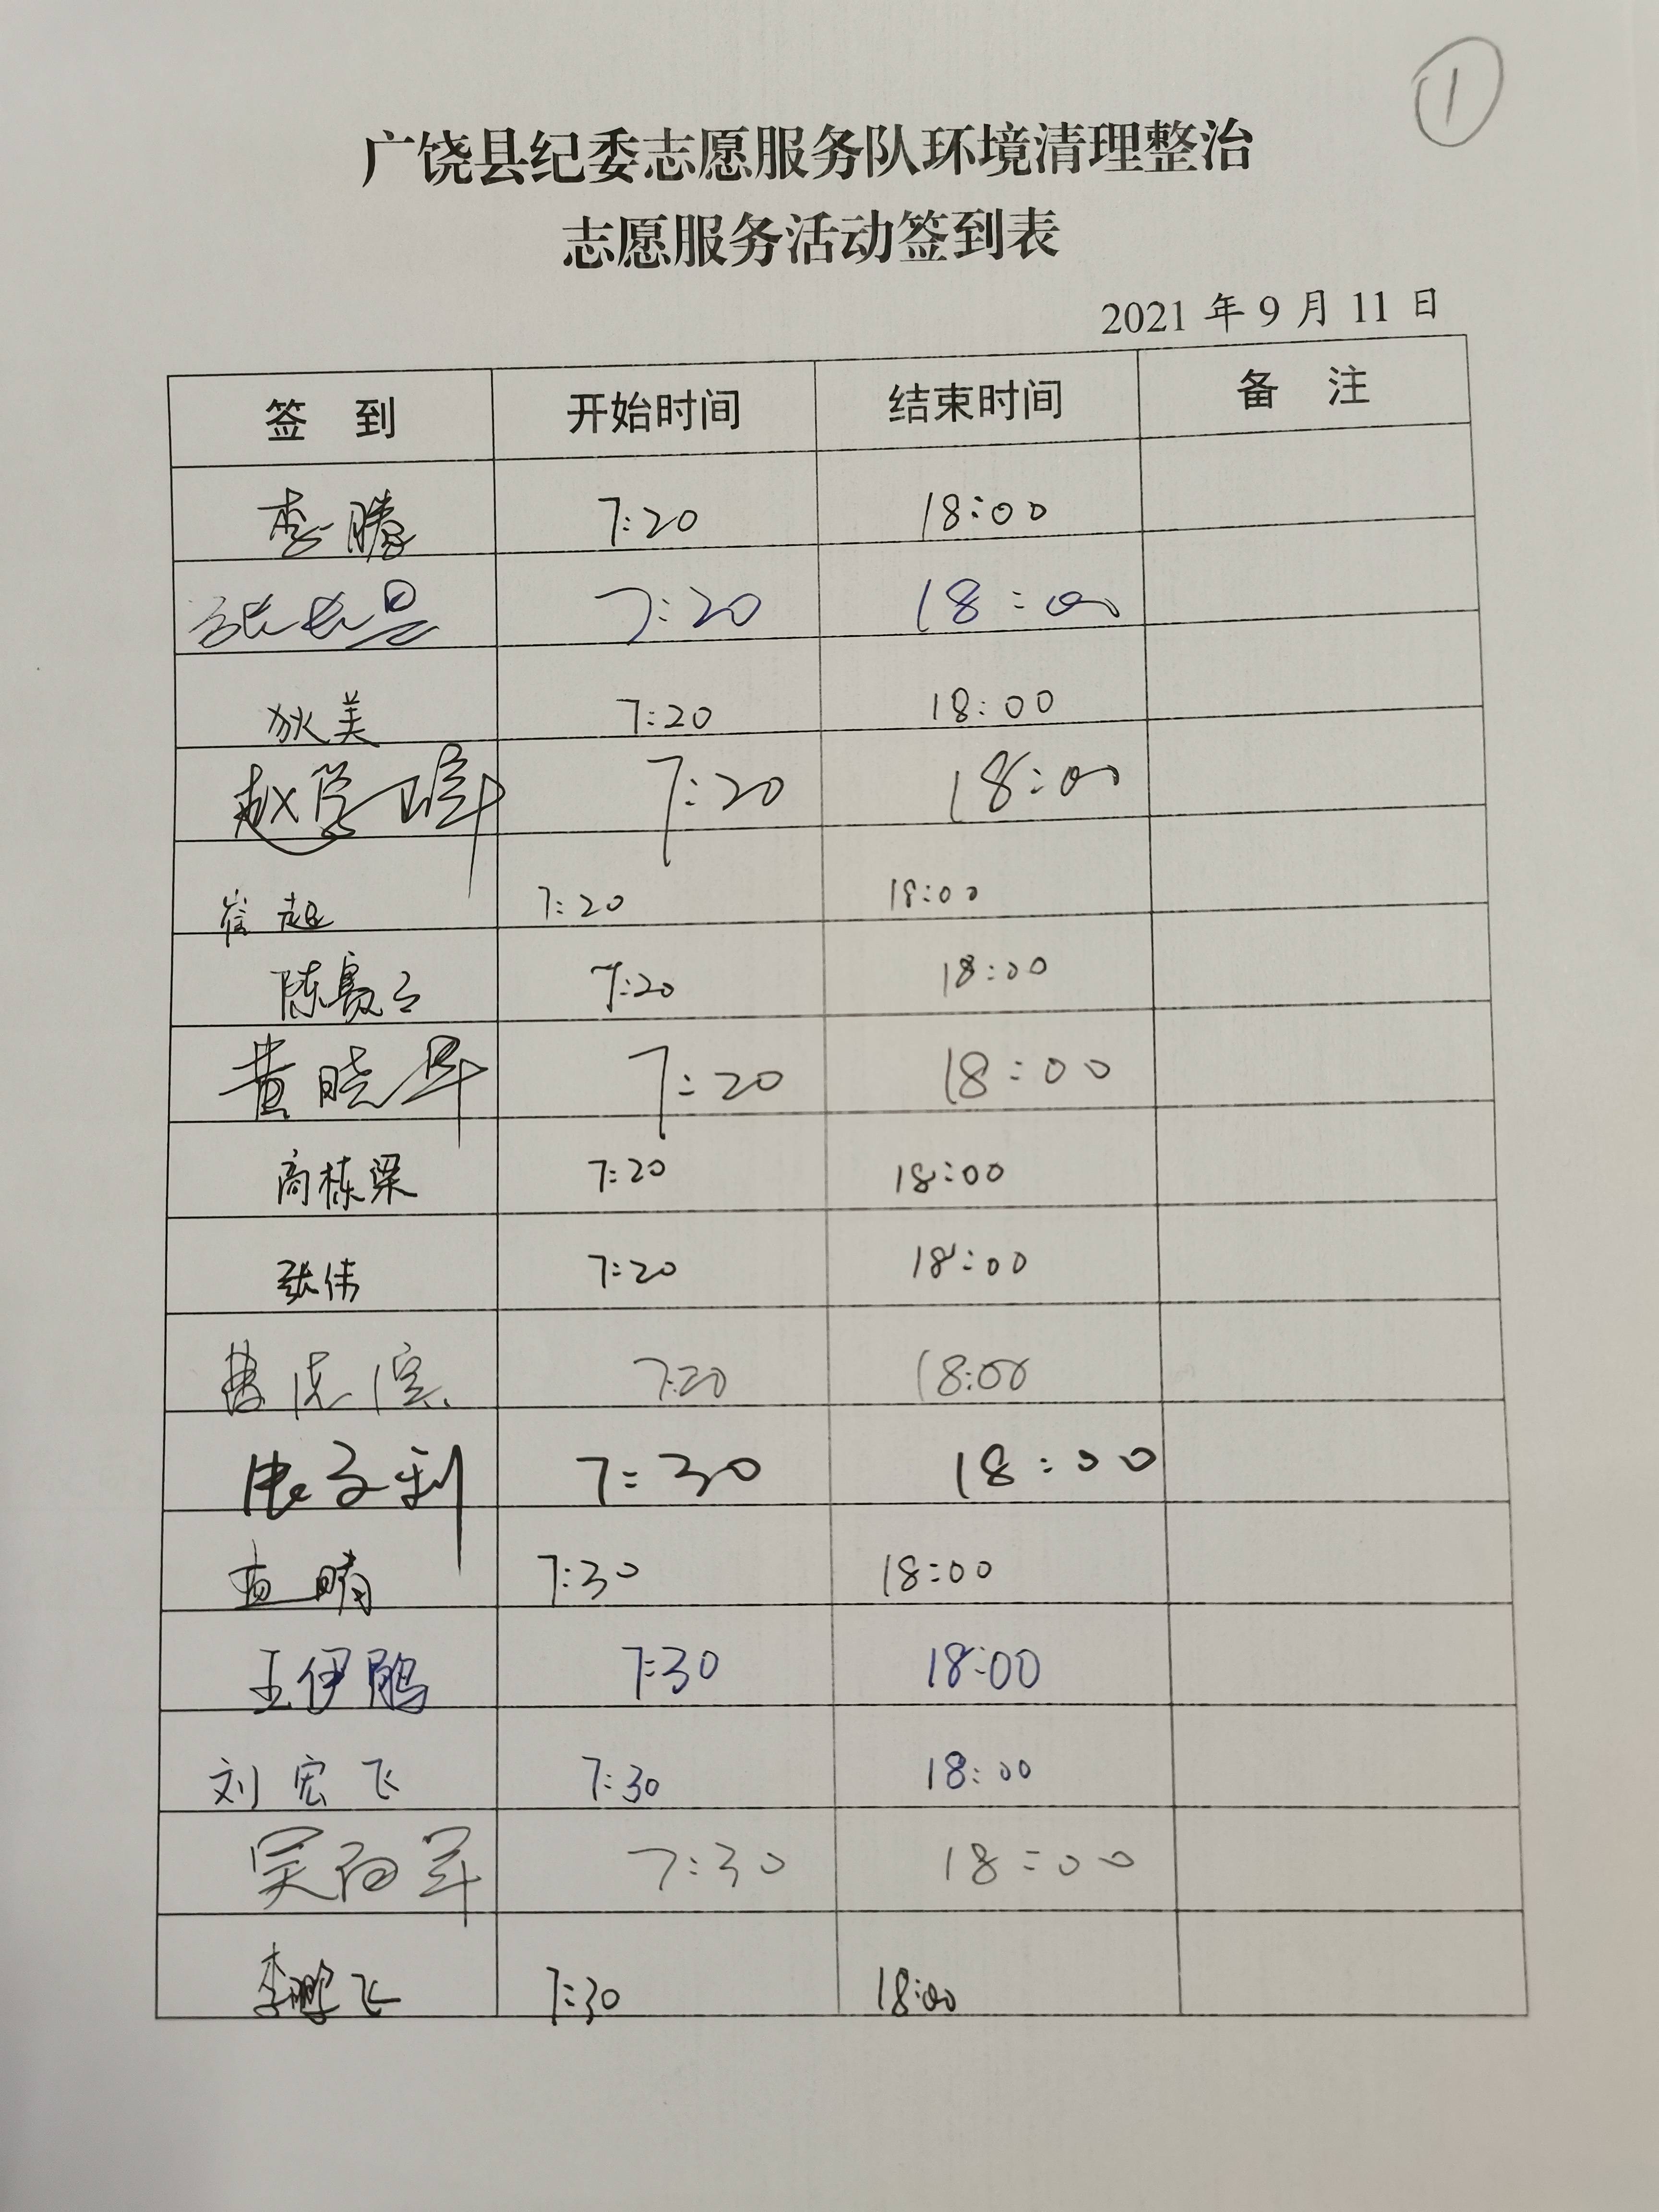 ①
广饶县纪委志愿服务队环境清理整治
志愿服务活动签到表
2021 年 9 月 11 日
签 到 开始时间 结束时间 备 注
李腾 7:20 18:00
7:20 18:00
狄美 7:20 18:00
赵学 7:20 18:00
崔超 7:20 18:00
陈 7:20 18:00
黄晓军 7:20 18:00
商栋梁 7:20 18:00
张伟 7:20 18:00
7:20 18:00
子利 7:30 18:00
晴 7:30 18:00
王伊鹏 7:30 18:00
刘宏飞 7:30 18:00
吴 军 7:30 18:00
李鹏飞 7:30 18:00